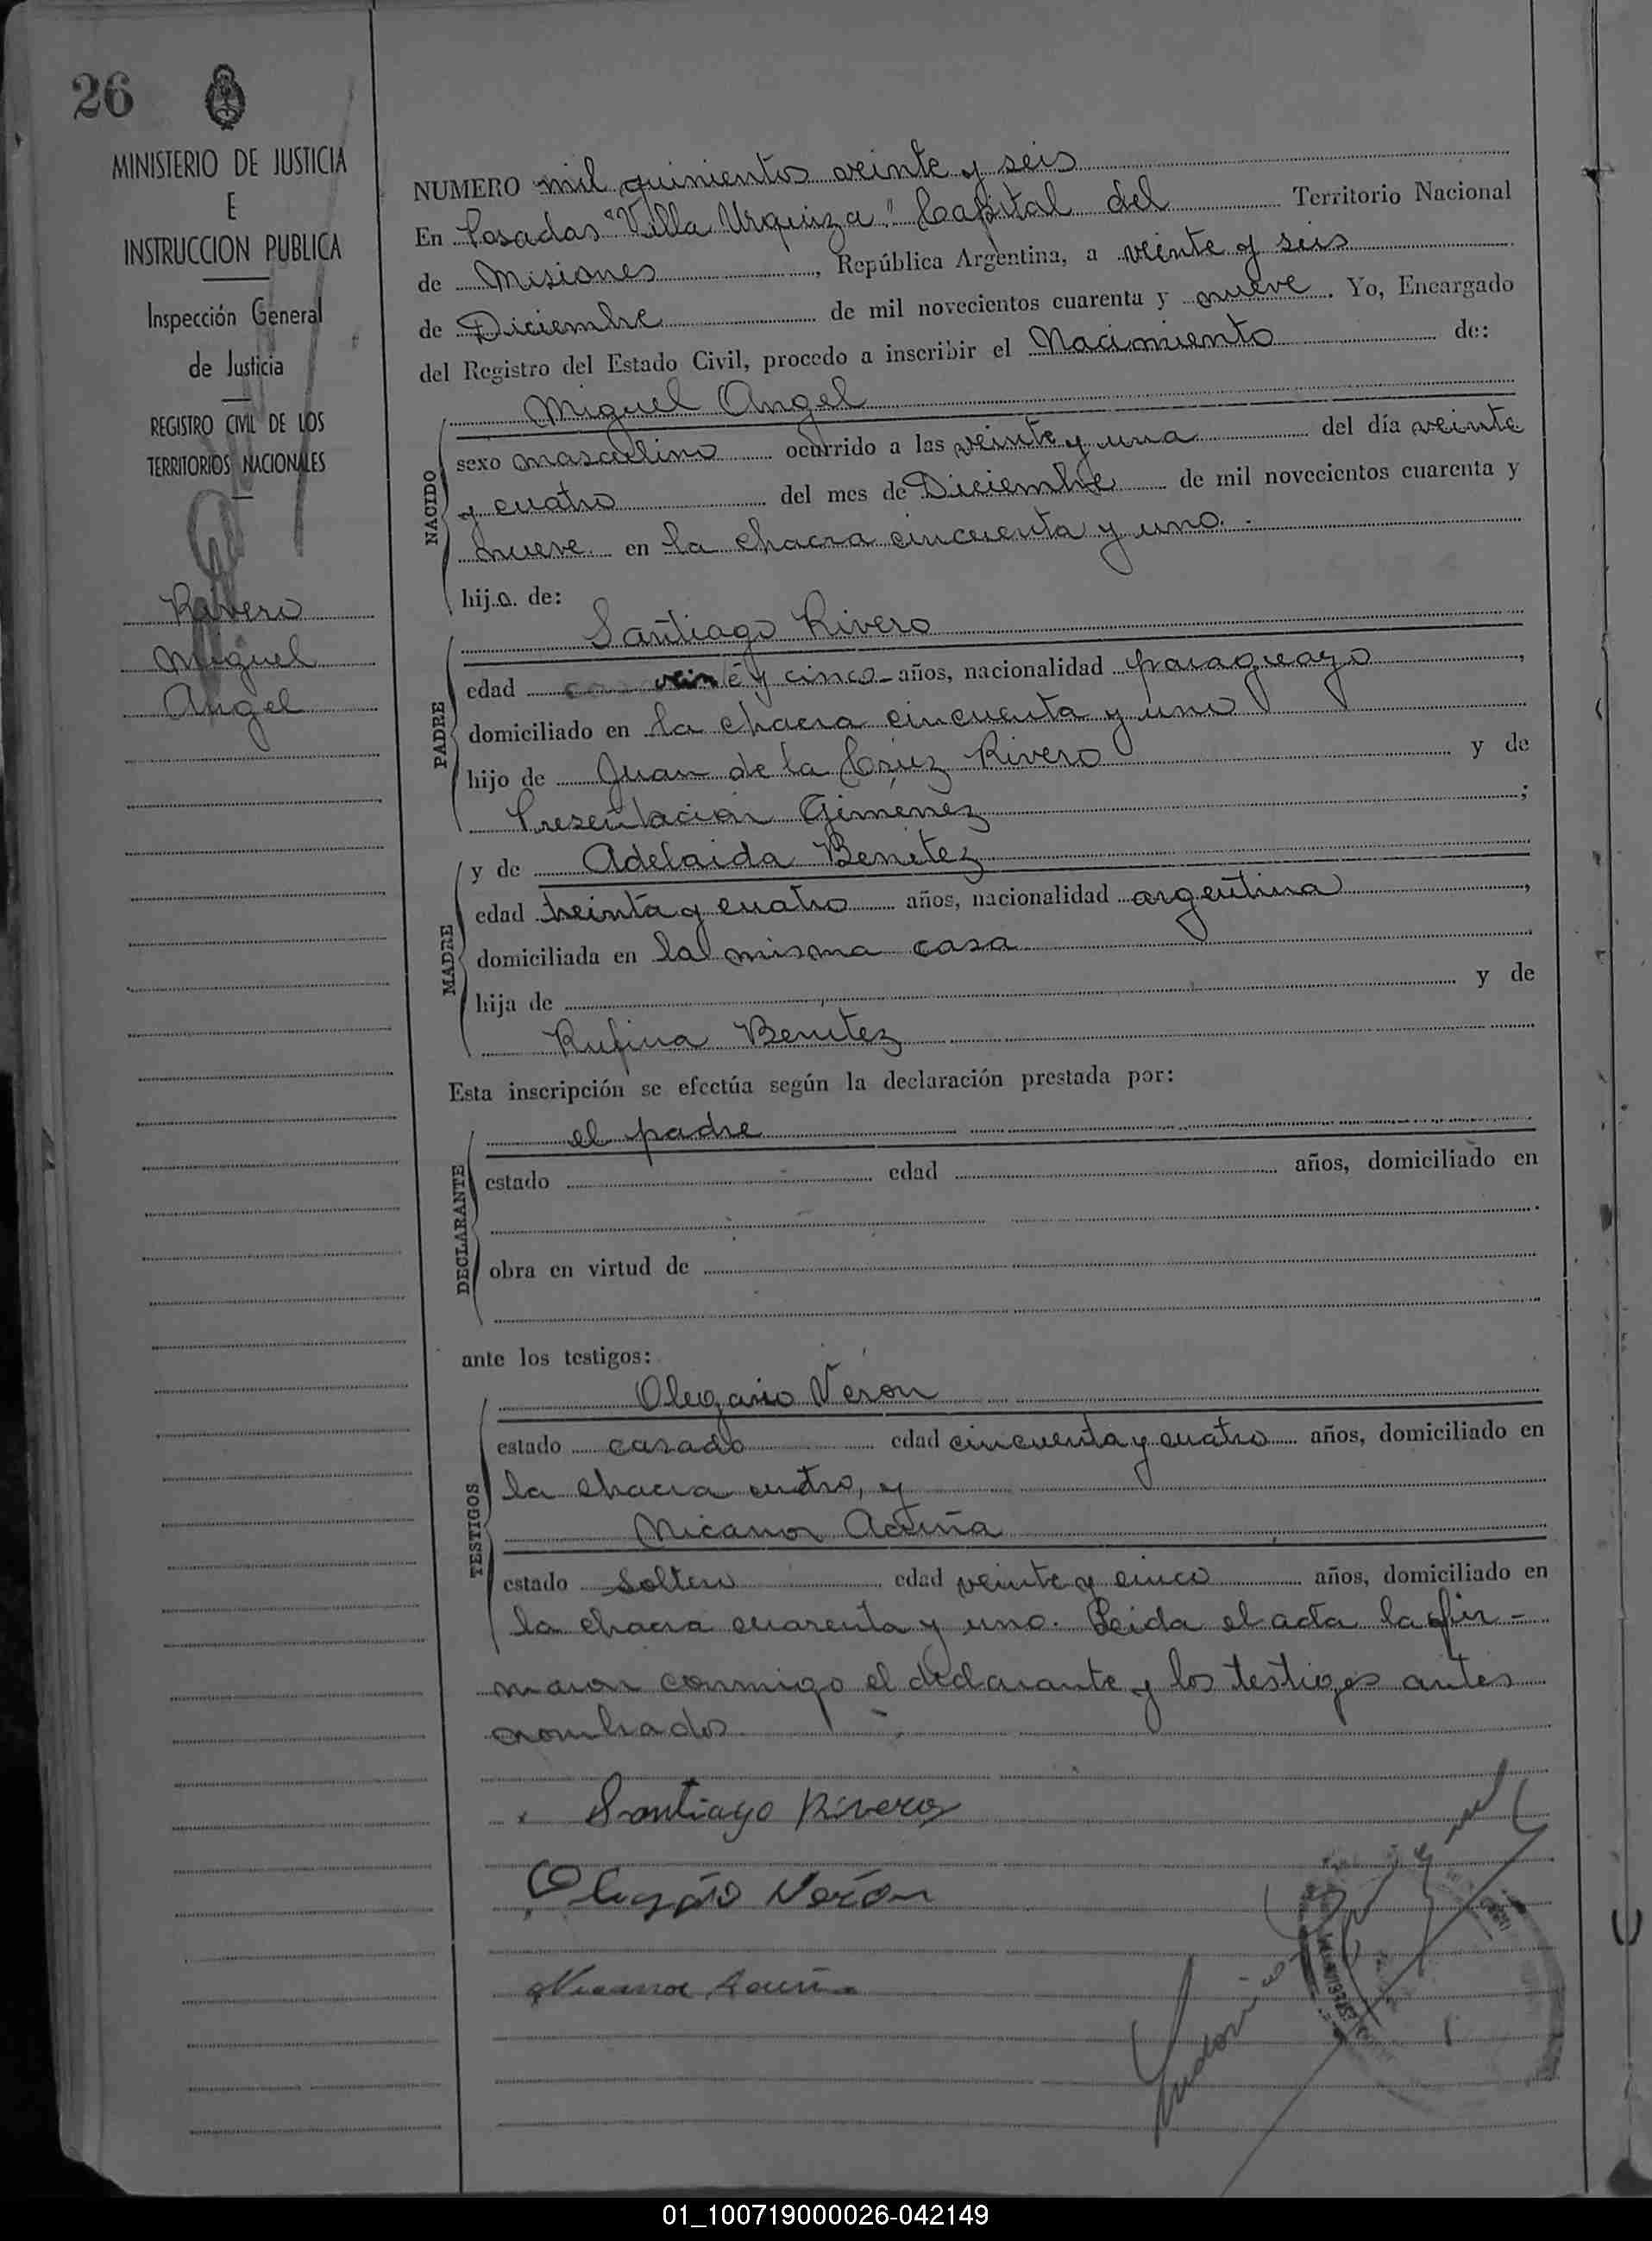 26
MINISTERIO DE JUSTICIA
E
INSTRUCCION PUBLICA
Inspección General
de Justicia
REGISTRO CIVIL DE LOS
TERRITORIOS NACIONALES
Rivero
Miguel
Angel
NUMERO mil quinientos veinte y seis
En Posadas "Villa Urquiza" Capital del Territorio Nacional
de Misiones, República Argentina, a veinte y seis
de Diciembre de mil novecientos cuarenta y nueve. Yo, Encargado
del Registro del Estado Civil, procedo a inscribir el Nacimiento de:
NACIDO
Miguel Angel
sexo masculino ocurrido a las veinte y una del día veinte
y cuatro del mes de Diciembre de mil novecientos cuarenta y
nueve en la chacra cincuenta y uno.
hijo de:
PADRE
Santiago Rivero
edad veinte y cinco años, nacionalidad paraguayo,
domiciliado en la chacra cincuenta y uno
hijo de Juan de la Cruz Rivero y de
Presentación Gimenez;
MADRE
y de Adelaida Benitez
edad treinta y cuatro años, nacionalidad argentina,
domiciliada en la misma casa
hija de y de
Rufina Benitez
Esta inscripción se efectúa según la declaración prestada por:
DECLARANTE
el padre
estado edad años, domiciliado en
obra en virtud de
ante los testigos:
TESTIGOS
Olegario Veron
estado casado edad cincuenta y cuatro años, domiciliado en
la chacra cuatro, y
Nicanor Acuña
estado soltero edad veinte y cinco años, domiciliado en
la chacra cuarenta y uno. Leida el acta la fir-
maron conmigo el declarante y los testigos antes
nombrados.
Santiago Rivero
Olegario Verón
Nicanor Acuña
01_100719000026-042149